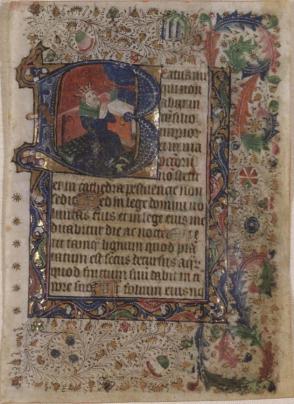 Beatus uir
qui non
abiit in
consilio
impior
et in uia
peccator
non stetit
et in cathedra pestilencie non
sedit Sed in lege domini uo
luntas eius et in lege eius me
ditabitur die ac nocte Et e
rit tamq lignum quod pla
tatum est secus decursus aqr
quod fructum suu dabit in te
pore suo Et folium eius no